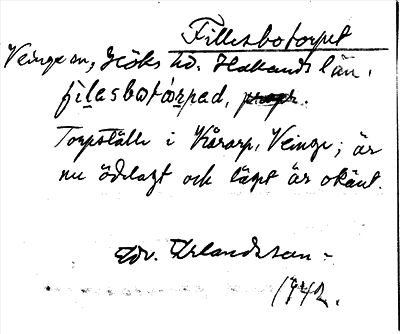 Fillesbotorpet
Veinge sn, Höks hd. Hallands län.
filasbotårpad,
Torpställe i Kårarp, Veinge; är
nu ödelagt och läget är okänt.
Edv. Erlandsson -
1942.